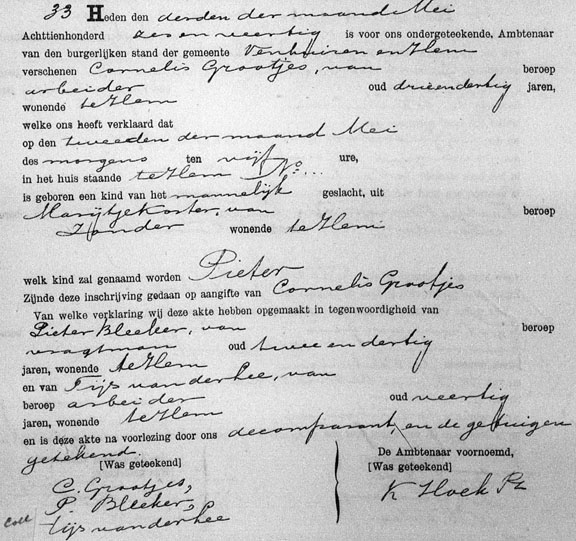 33 Heden den derden der maand Mei
Achttienhonderd zes en veertig is voor ons ondergeteekende, Ambtenaar
van den burgerlijken stand der gemeente Venhuizen en Hem
verschenen Cornelis Grootjes, van beroep
arbeider oud drieendertig jaren,
wonende te Hem
welke ons heeft verklaard dat
op den tweeden der maand Mei
des morgens ten vijf ure,
in het huis staande te Hem No...
is geboren een kind van het mannelijk geslacht, uit
Marijtje Koster, van beroep
Zonder wonende te Hem
welk kind zal genaamd worden Pieter
Zijnde deze inschrijving gedaan op aangifte van Cornelis Grootjes
Van welke verklaring wij deze akte hebben opgemaakt in tegenwoordigheid van
Pieter Bleeker, van beroep
vragtman oud twee en dertig
jaren, wonende te Hem
en van Tijs van der Lee, van
beroep arbeider oud veertig
jaren, wonende te Hem
en is deze akte na voorlezing door ons de comparant, en de getuigen
getekend.
[Was geteekend]
C. Grootjes,
P. Bleeker,
Tijs van der Lee
Coll
De Ambtenaar voornoemd,
[Was geteekend]
K Hoek Pz